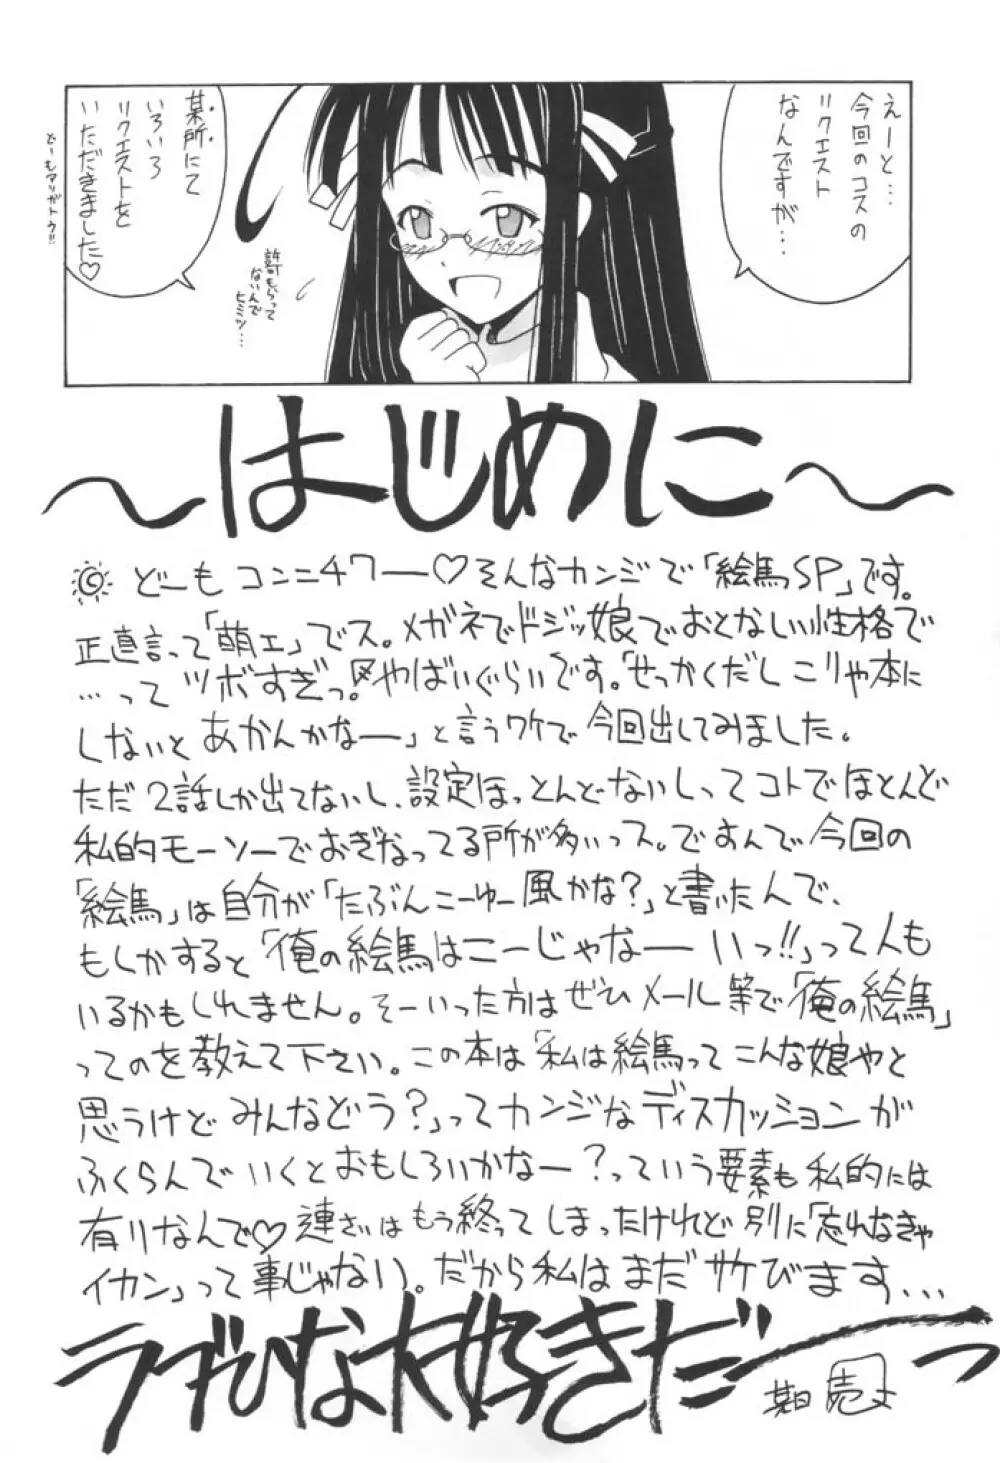 えーと…
今回のコスの
リクエスト
なんですが…
某所にて
いろいろ
リクエストを
いただきました♡
どーもアリガトウ!!
許可もらって
ないんで
ヒミツ…
～はじめに～
どーも コンニチワー♡そんなカンジで「絵馬SP」です。
正直言って「萌エ」でス。メガネでドジッ娘でおとなしい性格で
…って ツボすぎっ。やばいぐらいです。「せっかくだし こりゃ本に
しないと あかんかなー」と言うワケで 今回出してみました。
ただ 2話しか出てないし、設定ほっとんどないしってコトでほとんど
私的モーソーでおぎなってる所が多いっス。ですんで今回の
「絵馬」は自分が「たぶんこーゆー風かな？」と書いたんで、
もしかすると「俺の絵馬はこーじゃなー いっ!!」って人も
いるかもしれません。そーいった方はぜひメール等で「俺の絵馬」
ってのを教えて下さい。この本は「私は絵馬って こんな娘やと
思うけど みんなどう？」ってカンジなディスカッションが
ふくらんでいくとおもしろいかなー？っていう要素も私的には
有りなんで♡ 連ざいはもう終ってしまったけれど 別に「忘れなきゃ
イカン」って事じゃない。だから私はまだサケびます…
ラブひな大好きだーっ